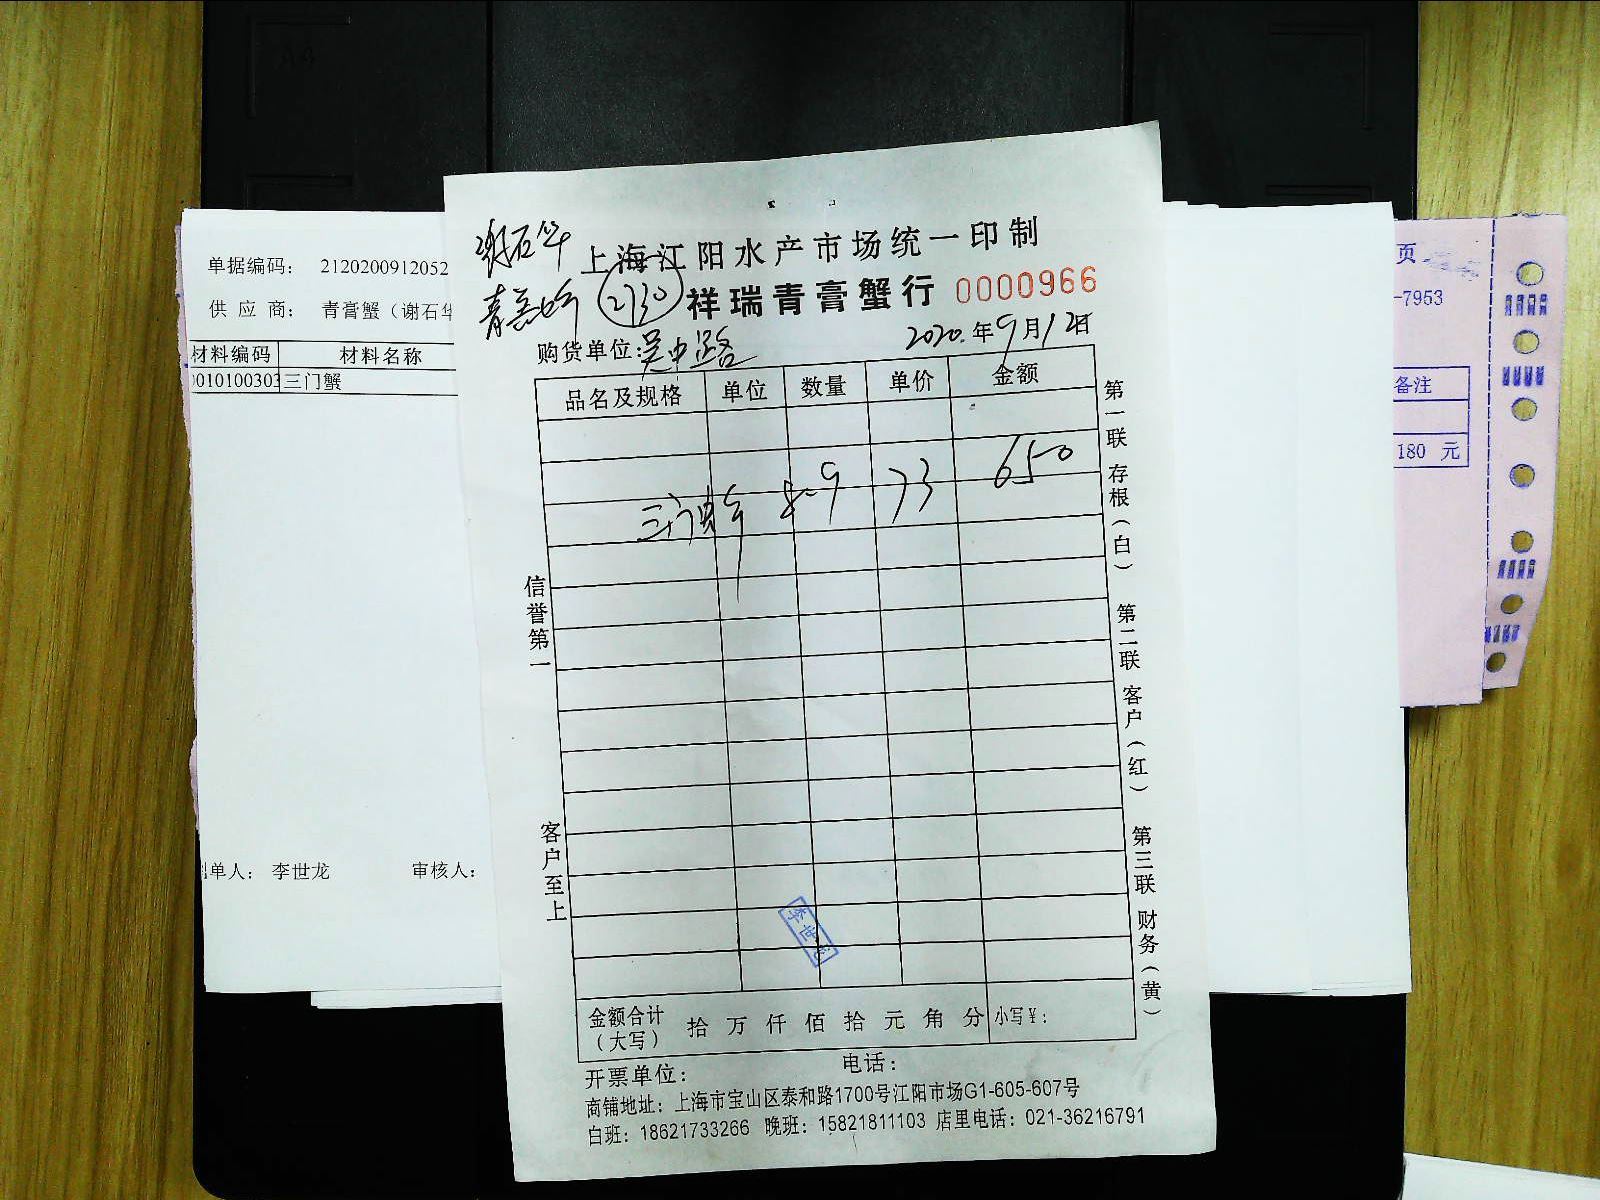 谢石华
青膏蟹
2730
上海江阳水产市场统一印制
祥瑞青膏蟹行 0000966
购货单位:吴中路 2020.年9月12日
品名及规格 单位 数量 单价 金额
三门蟹 8-9 73 650
金额合计(大写) 拾 万 仟 佰 拾 元 角 分 小写¥:
开票单位: 电话:
商铺地址: 上海市宝山区泰和路1700号江阳市场G1-605-607号
白班: 18621733266 晚班: 15821811103 店里电话: 021-36216791
信誉第一
客户至上
第一联 存根(白)
第二联 客户(红)
第三联 财务(黄)
李世龙
单据编码: 2120200912052
供应商: 青膏蟹(谢石华
材料编码 材料名称
010100303 三门蟹
单人: 李世龙 审核人:
页
-7953
备注
180 元